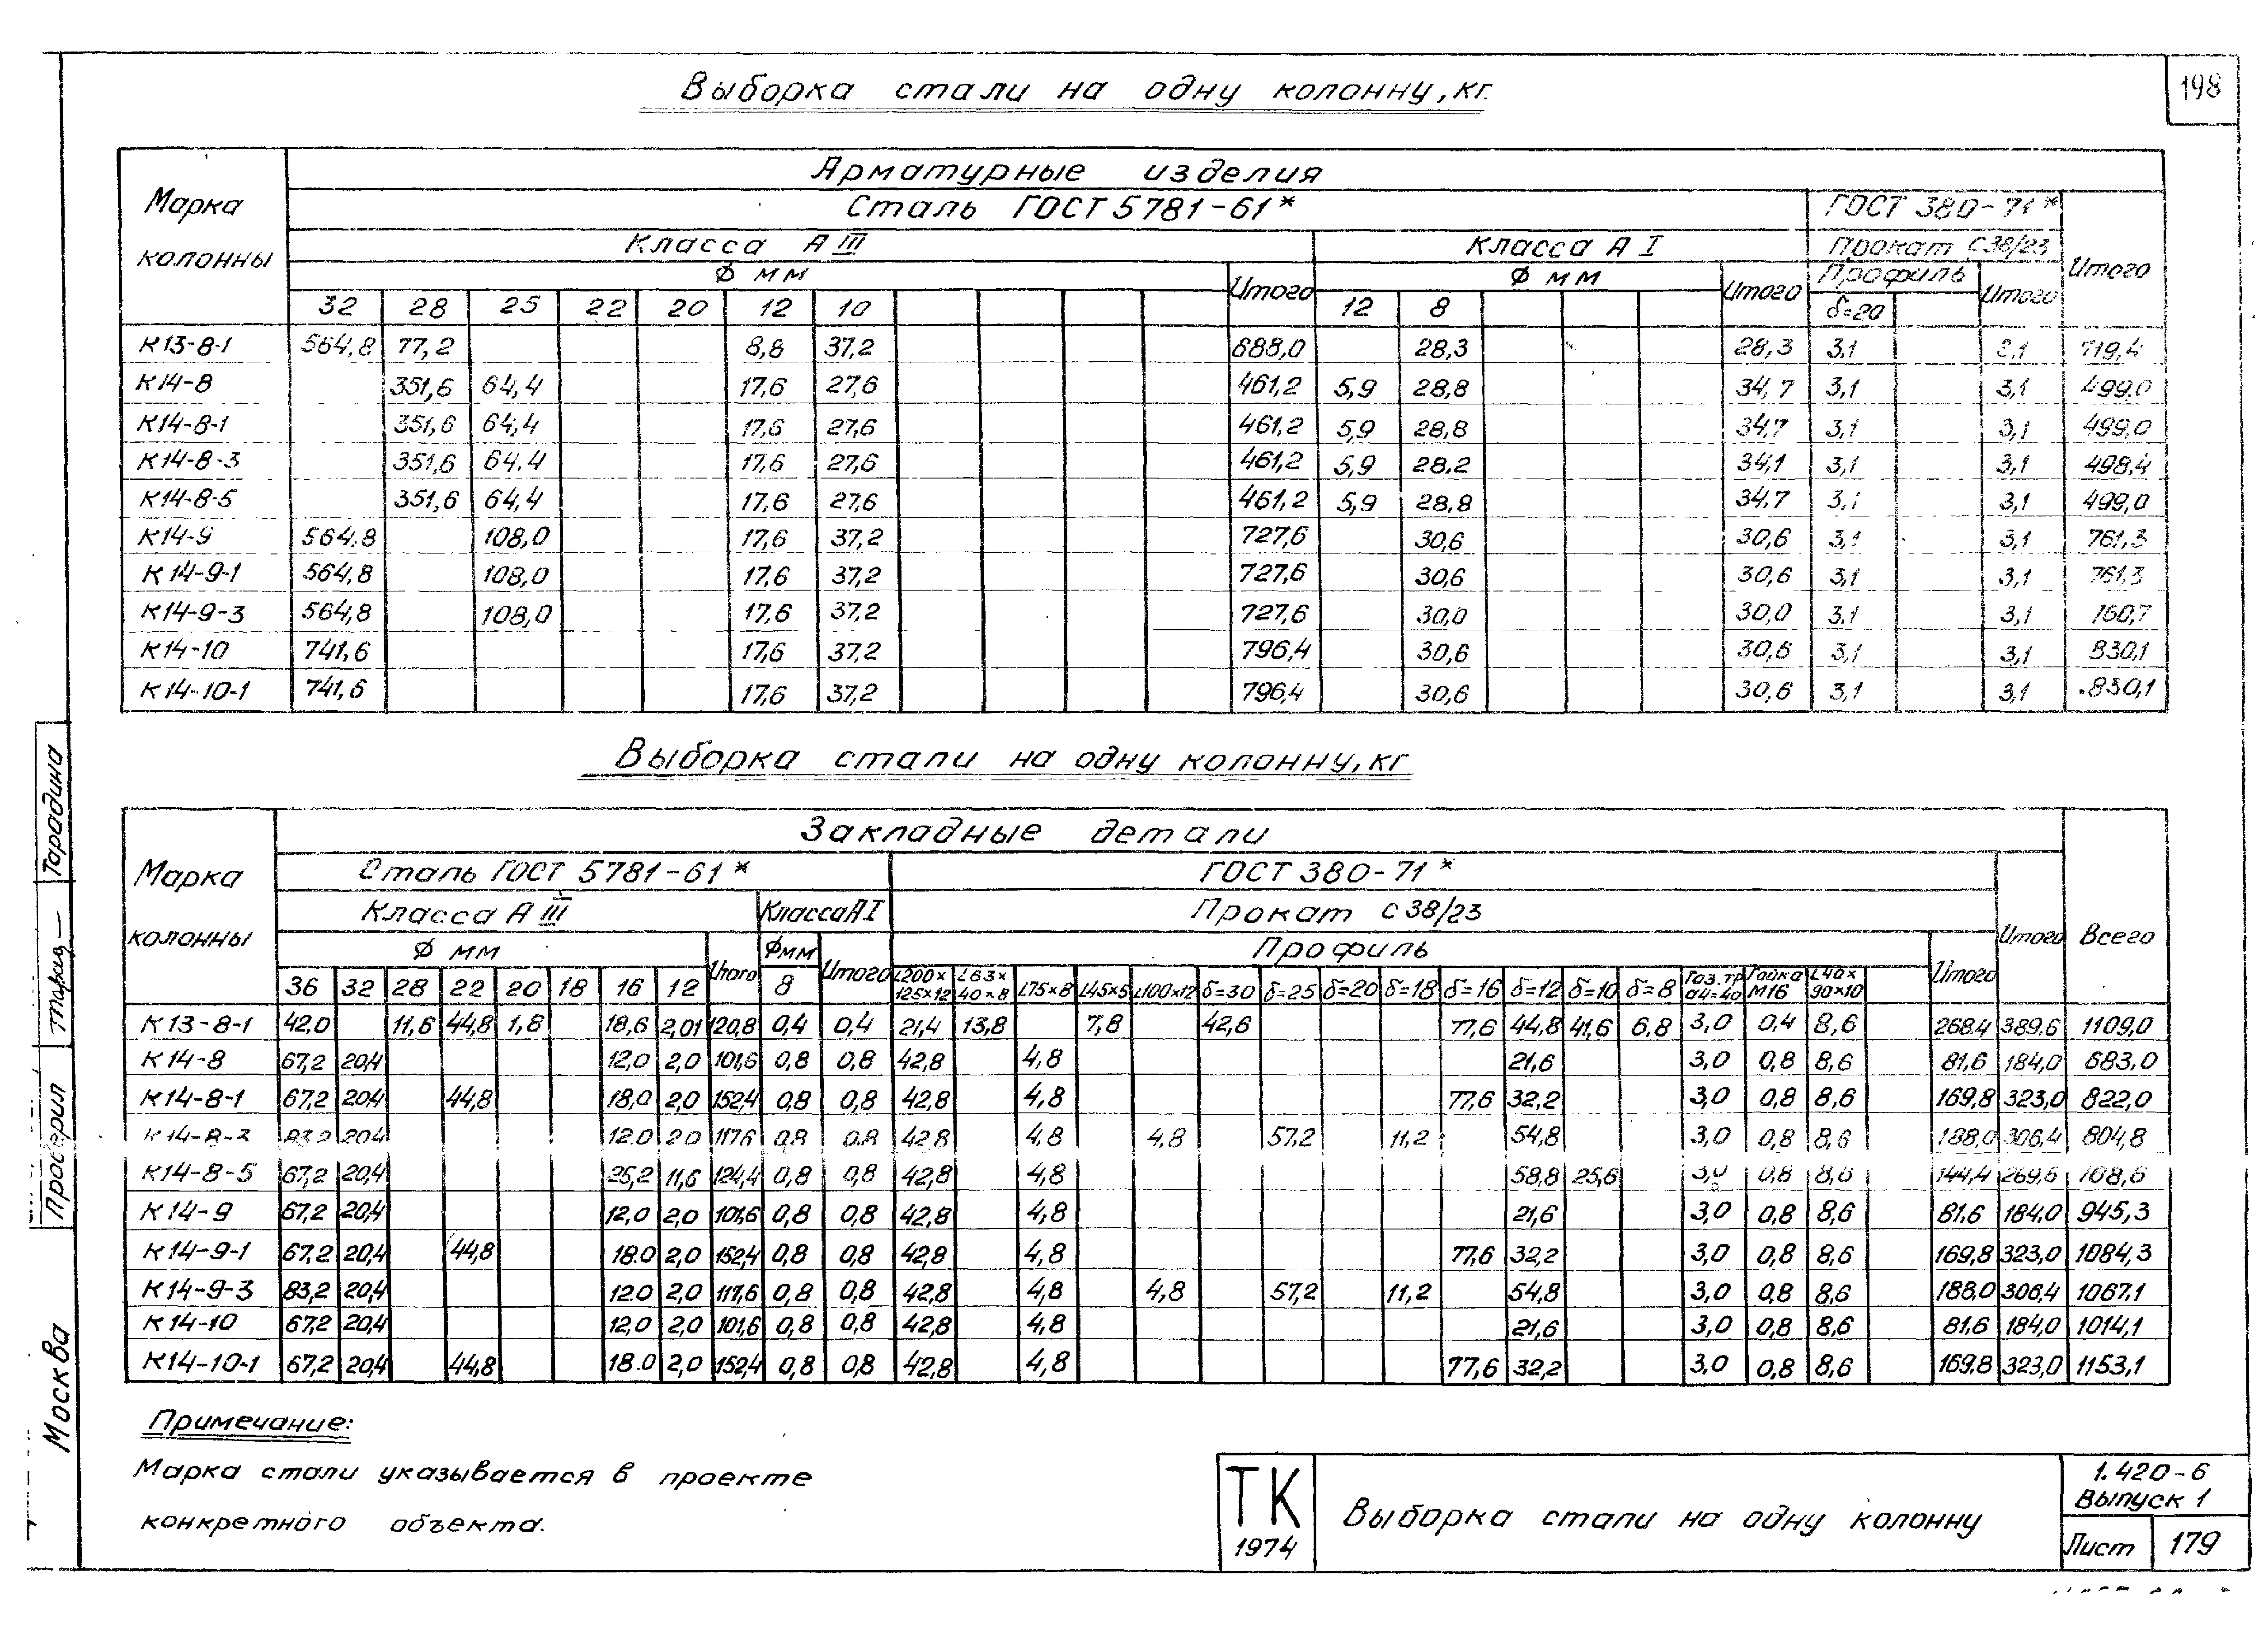 198
Выборка стали на одну колонну, кг.
Марка колонны
Арматурные изделия
Сталь ГОСТ 5781-61*
ГОСТ 380-71*
Итого
Класса А III
Класса А I
Прокат С38/23
Ф мм
Итого
Ф мм
Итого
Профиль
Итого
32 28 25 22 20 12 10 12 8 δ=20
К13-8-1 564,8 77,2 8,8 37,2 688,0 28,3 28,3 3,1 3,1 719,4
К14-8 351,6 64,4 17,6 27,6 461,2 5,9 28,8 34,7 3,1 3,1 499,0
К14-8-1 351,6 64,4 17,6 27,6 461,2 5,9 28,8 34,7 3,1 3,1 499,0
К14-8-3 351,6 64,4 17,6 27,6 461,2 5,9 28,2 34,1 3,1 3,1 498,4
К14-8-5 351,6 64,4 17,6 27,6 461,2 5,9 28,8 34,7 3,1 3,1 499,0
К14-9 564,8 108,0 17,6 37,2 727,6 30,6 30,6 3,1 3,1 761,3
К14-9-1 564,8 108,0 17,6 37,2 727,6 30,6 30,6 3,1 3,1 761,3
К14-9-3 564,8 108,0 17,6 37,2 727,6 30,0 30,0 3,1 3,1 760,7
К14-10 741,6 17,6 37,2 796,4 30,6 30,6 3,1 3,1 830,1
К14-10-1 741,6 17,6 37,2 796,4 30,6 30,6 3,1 3,1 830,1
Выборка стали на одну колонну, кг
Марка колонны
Закладные детали
Всего
Сталь ГОСТ 5781-61*
ГОСТ 380-71*
Итого
Класса А III
Класса А I
Прокат С38/23
Ф мм
Итого
Фмм
Итого
Профиль
Итого
36 32 28 22 20 18 16 12 8 L200×125×12 L63×40×8 L75×8 L45×5 L100×12 δ=30 δ=25 δ=20 δ=18 δ=16 δ=12 δ=10 δ=8 Газ.тр d4=40 Гайка М16 L40×90×10
К13-8-1 42,0 11,6 44,8 1,8 18,6 2,01 120,8 0,4 0,4 21,4 13,8 7,8 42,6 77,6 44,8 41,6 6,8 3,0 0,4 8,6 268,4 389,6 1109,0
К14-8 67,2 20,4 12,0 2,0 101,6 0,8 0,8 42,8 4,8 21,6 3,0 0,8 8,6 81,6 184,0 683,0
К14-8-1 67,2 20,4 44,8 18,0 2,0 152,4 0,8 0,8 42,8 4,8 77,6 32,2 3,0 0,8 8,6 169,8 323,0 822,0
К14-8-3 83,2 20,4 12,0 2,0 117,6 0,8 0,8 42,8 4,8 4,8 57,2 11,2 54,8 3,0 0,8 8,6 188,0 306,4 804,8
К14-8-5 67,2 20,4 25,2 11,6 124,4 0,8 0,8 42,8 4,8 58,8 25,6 3,0 0,8 8,6 144,4 269,6 768,6
К14-9 67,2 20,4 12,0 2,0 101,6 0,8 0,8 42,8 4,8 21,6 3,0 0,8 8,6 81,6 184,0 945,3
К14-9-1 67,2 20,4 44,8 18,0 2,0 152,4 0,8 0,8 42,8 4,8 77,6 32,2 3,0 0,8 8,6 169,8 323,0 1084,3
К14-9-3 83,2 20,4 12,0 2,0 117,6 0,8 0,8 42,8 4,8 4,8 57,2 11,2 54,8 3,0 0,8 8,6 188,0 306,4 1067,1
К14-10 67,2 20,4 12,0 2,0 101,6 0,8 0,8 42,8 4,8 21,6 3,0 0,8 8,6 81,6 184,0 1014,1
К14-10-1 67,2 20,4 44,8 18,0 2,0 152,4 0,8 0,8 42,8 4,8 77,6 32,2 3,0 0,8 8,6 169,8 323,0 1153,1
Примечание:
Марка стали указывается в проекте
конкретного объекта.
ТК
1974
Выборка стали на одну колонну
1.420-6
Выпуск 1
Лист 179
Тарадина
Проверил
Москва